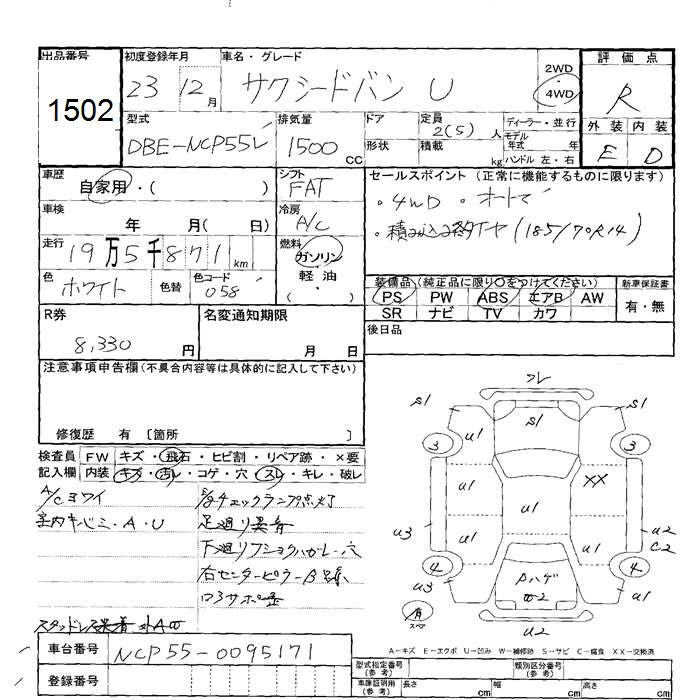 出品番号 初度登録年月 車名・グレード 評価点
1502 23 12月 サクシードバン U 2WD・4WD R
型式 排気量 ドア 定員 ディーラー・並行 外装 内装
DBE-NCP55V 1500CC 形状 2(5)人 モデル年式 年 E D
積載 kg ハンドル 左・右
車歴 シフト セールスポイント(正常に機能するものに限ります)
自家用・( ) FAT ・4WD ・オートマ
車検 冷房
年 月( 日) A/C (185/70R14)
走行 燃料
19万5千871km ガソリン
色 色替 色コード 軽油・
ホワイト 058 ( )
装備品(純正品に限り○をつけてください) 新車保証書
PS PW ABS エアB AW 有・無
SR ナビ TV カワ
R券 名変通知期限 後日品
8,330円 月 日
注意事項申告欄(不具合内容等は具体的に記入して下さい)
修復歴 有 〔箇所 〕
検査員 FW キズ・飛石・ヒビ割・リペア跡・×要
記入欄 内装 キズ・汚レ・コゲ・穴・スレ・キレ・破レ
A/Cヨワイ
室内キバミ・A・U
チェックランプ点灯
足廻り異音
右センターピラー
スタッドレス装着
フレ
S1 S1 S1
3 U1 U1 3
U1 XX
U3 U1 U1 U1 U2
C2
4 4
U3 Aハゲ U1
W2
スペア U2
A-キズ E-エクボ U-凹み W-補修跡 S-サビ C-腐食 XX-交換済
車台番号 NCP55-0095171
登録番号
型式指定番号(参考) 類別区分番号(参考)
車庫証明用(参考) 長さ cm 幅 cm 高さ cm